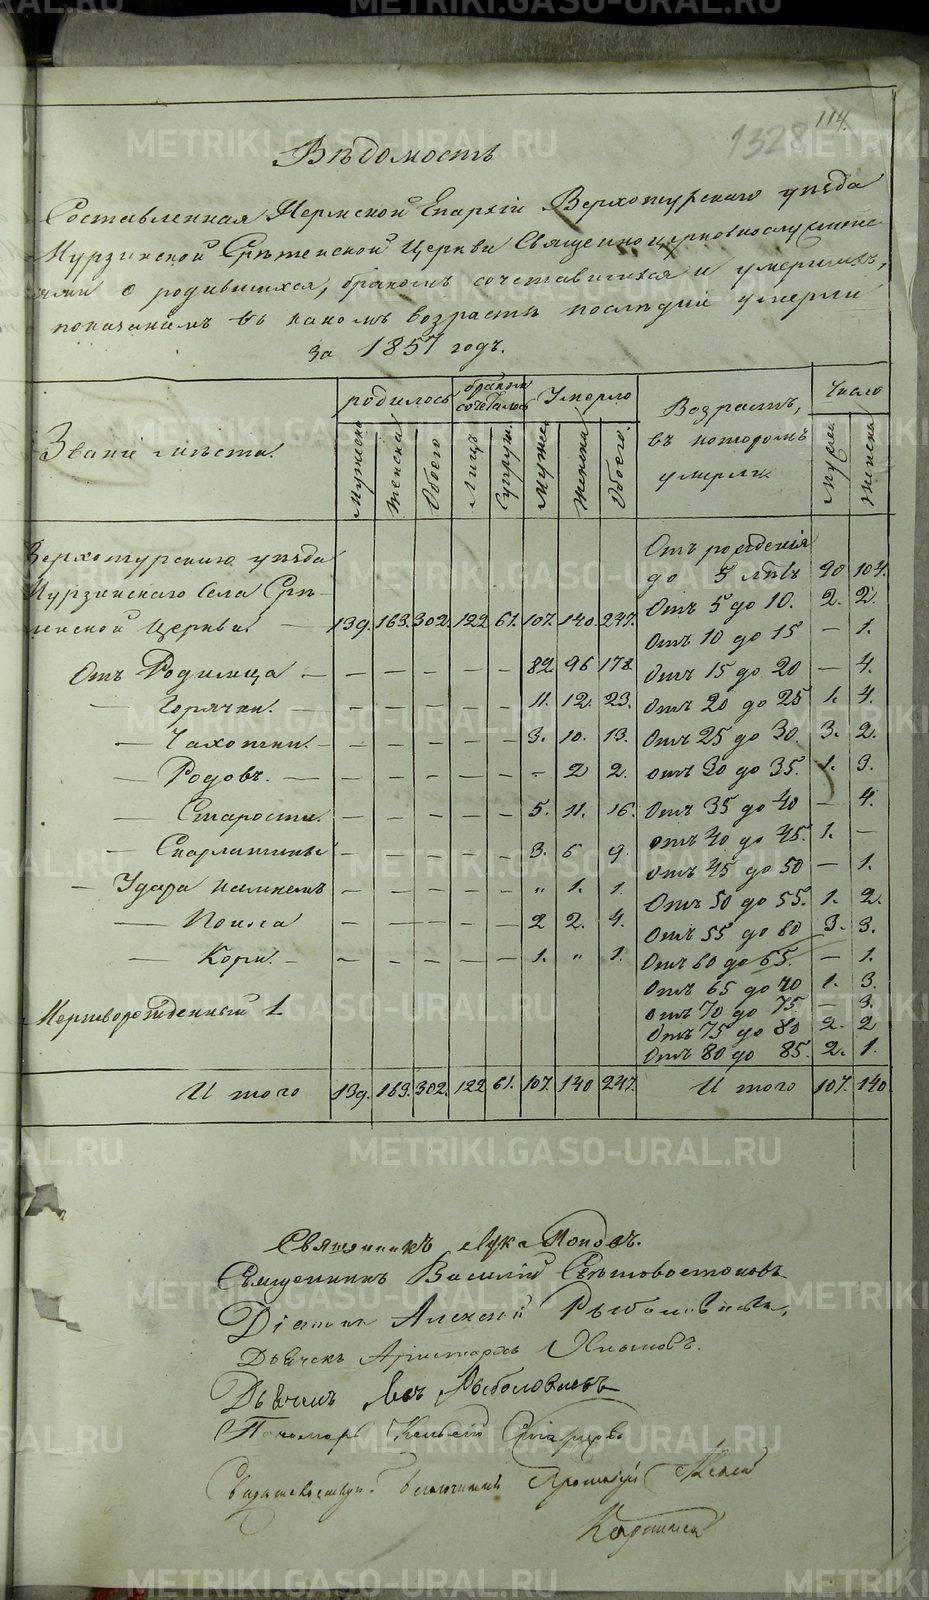 114.
1328
Вѣдомость
Составленная Пермской Епархіи Верхотурскаго уѣзда
Мурзинской Срѣтенской Церкви Священноцерковнослужите
лями о родившихся, бракомъ сочетавшихся и умершихъ,
показаніемъ въ какомъ возрастѣ послѣдніе умерли
за 1857 годъ.
Званіе мѣста. | родилось | бракомъ сочеталось | Умерло | Возрастъ, въ которомъ умерли | Число
Мужеска | Женска | Обоего | Лицъ | Супруж. | Муже | Женска | Обоего. | Муже | Женска
Верхотурскаго уѣзда
Мурзинскаго Села Срѣ-
тенской Церкви. — 139. 163. 302. 122 61. 107. 140. 247.
Отъ Родимца — — — — — — 82 96 178.
— Горячки. — — — — — — 11. 12. 23.
— Чахотки. — — — — — — 3. 10. 13.
— Родовъ. — — — — — — – 2 2.
— Старости. — — — — — 5. 11. 16.
— Скарлатины — — — — — 3. 6 9.
— Удара камнемъ — — — — — „ 1. 1.
— Поноса — — — — — 2 2. 4.
— Кори. — — — — — — 1. „ 1.
Мертворожденный 1
Отъ рожденія
до 5 лѣтъ 90 104.
Отъ 5 до 10. 2. 2.
Отъ 10 до 15 — 1.
Отъ 15 до 20 — 4.
Отъ 20 до 25 1. 4.
Отъ 25 до 30. 3. 2.
отъ 30 до 35. 1. 3.
Отъ 35 до 40 — 4.
отъ 40 до 45. 1. —
Отъ 45 до 50 — 1.
Отъ 50 до 55. 1. 2.
Отъ 55 до 60 3. 3.
Отъ 60 до 65. — 1.
Отъ 65 до 70 1. 3.
отъ 70 до 75 — 3.
Отъ 75 до 80 2. 2
Отъ 80 до 85. 2. 1.
И того 139. 163. 302. 122 61. 107. 140 247. И того 107. 140
Священникъ Лука Поповъ.
Священникъ Василій Свѣтовостоковъ
Діаконъ Алексѣй Рыболовлевъ,
Дьячекъ Аристархъ
Дьячекъ Левъ Рыболовлевъ
Пономарь
Свидѣтельствовалъ Благочинный Протоіерей
METRIKI.GASO-URAL.RU